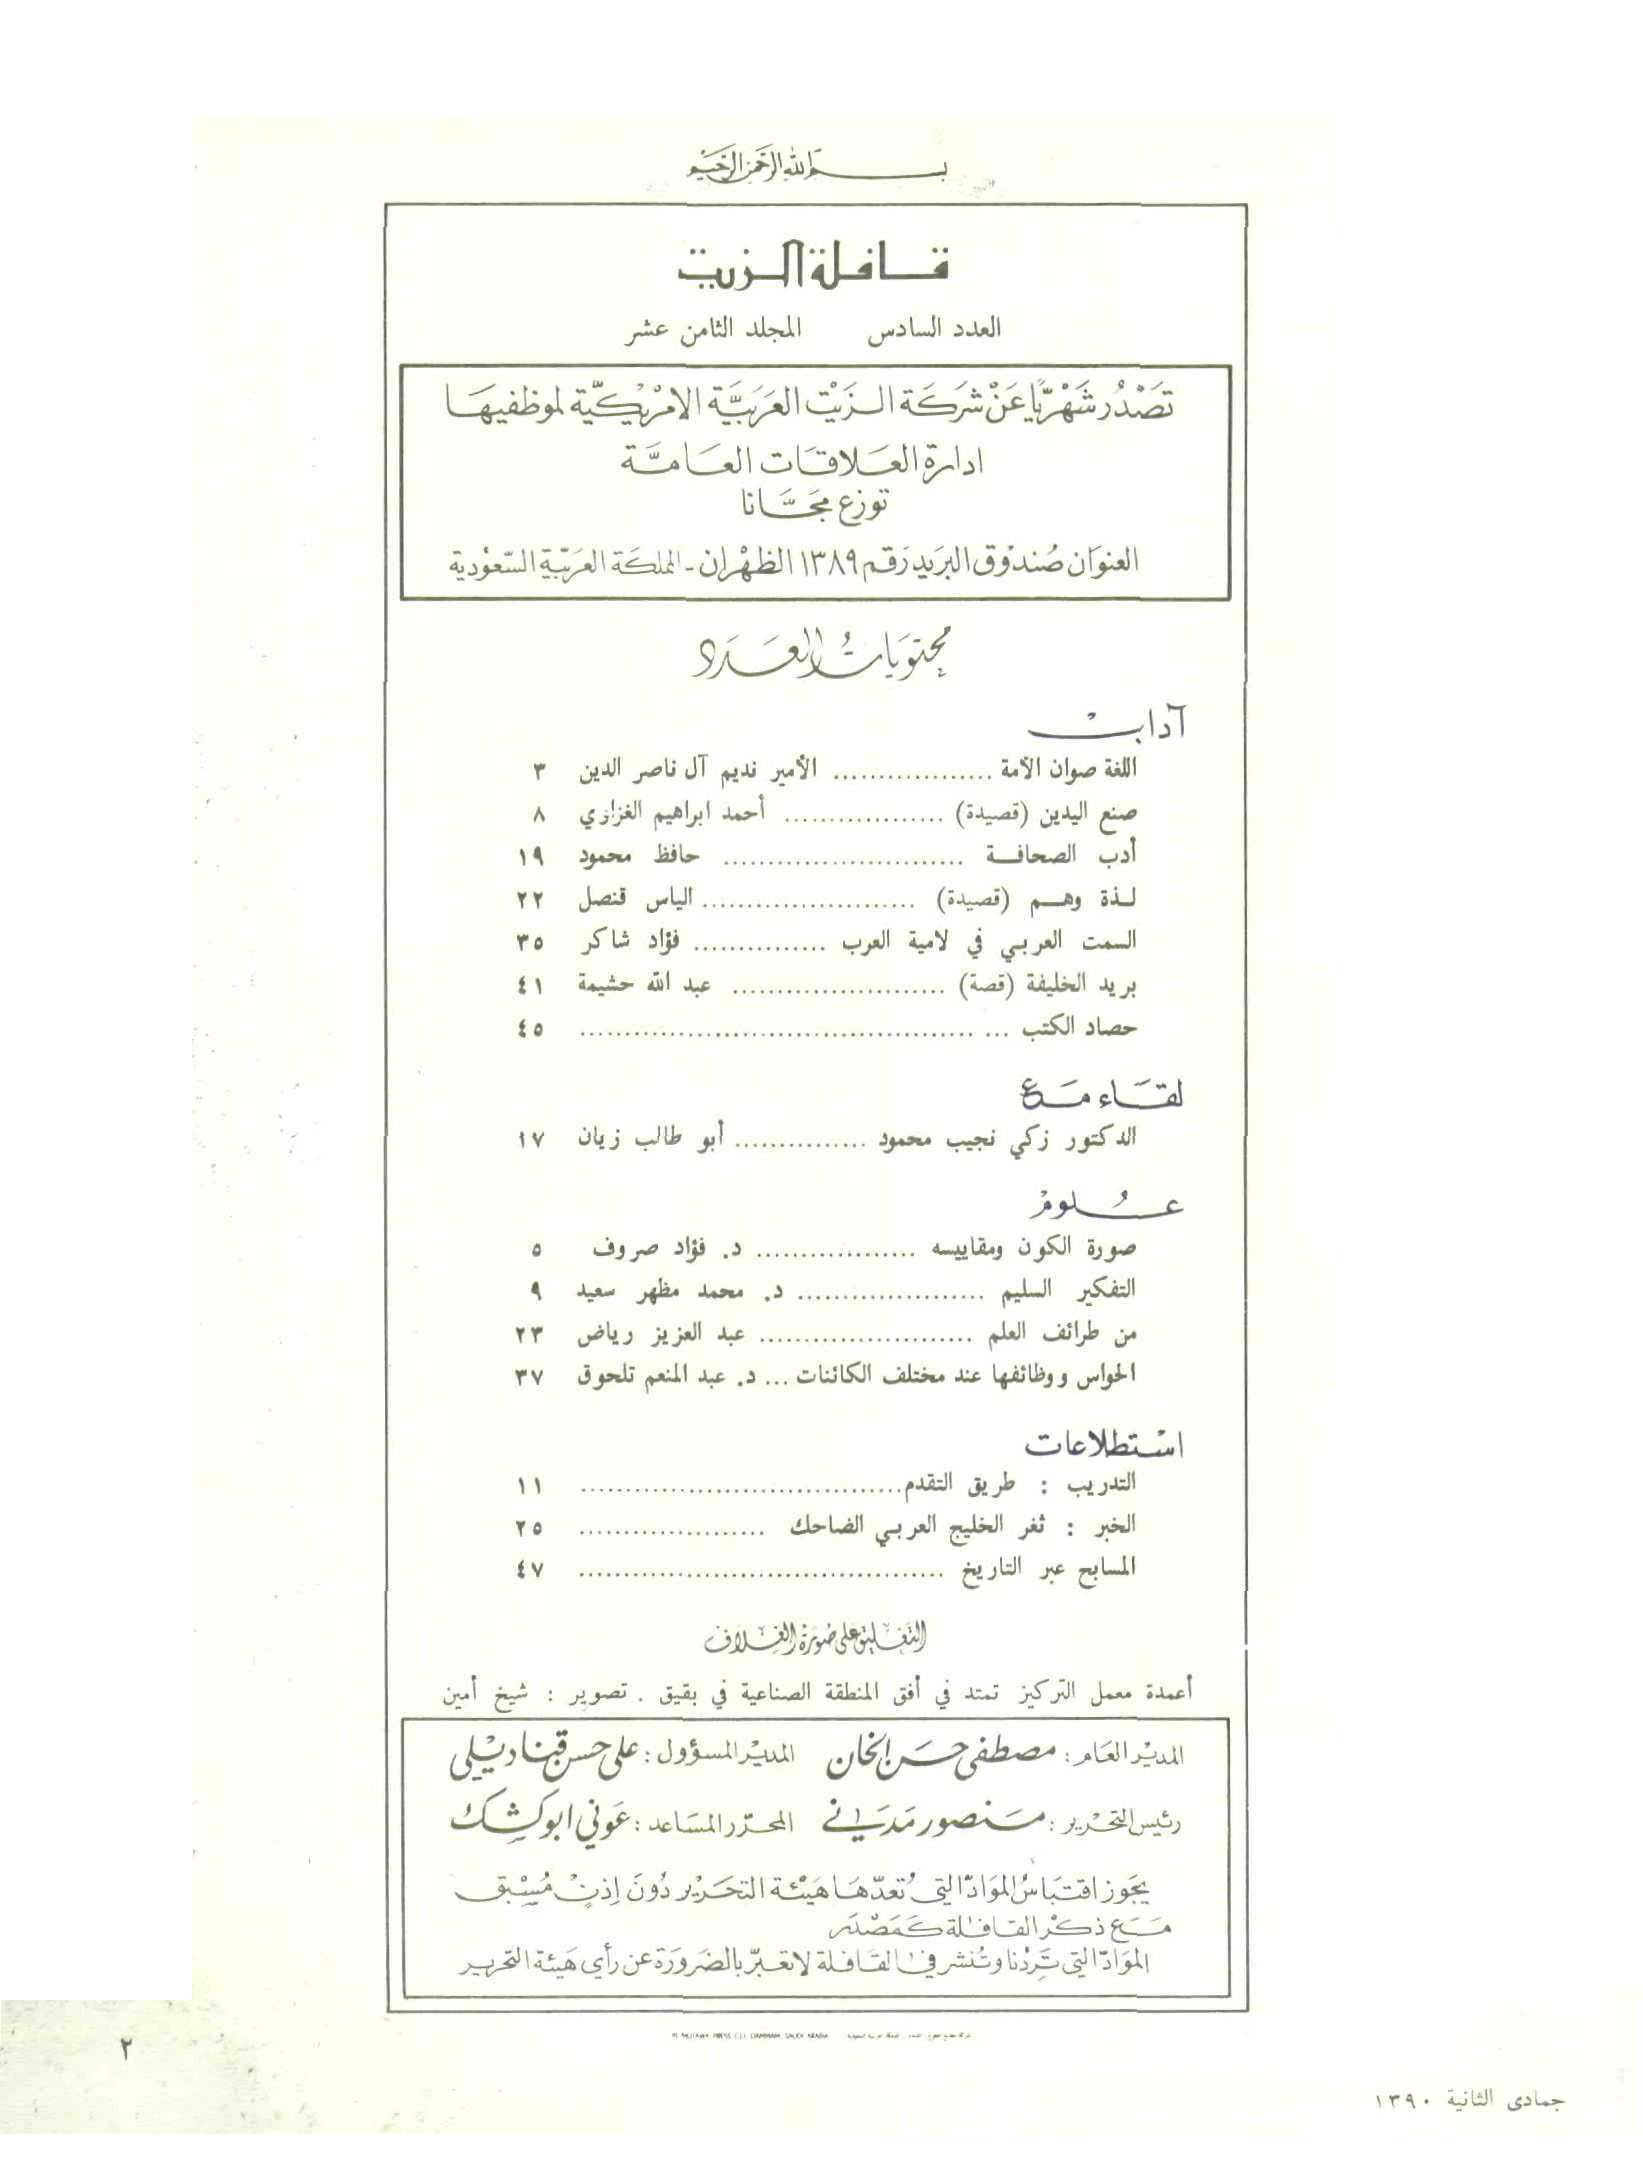 بسم الله الرحمن الرحيم
قافلة الزيت
العدد السادس المجلد الثامن عشر
تصدر شهريا عن شركة الزيت العربية الامريكية لموظفيها
ادارة العلاقات العامة
توزع مجانا
العنوان صندوق البريد رقم ١٣٨٩ الظهران - المملكة العربية السعودية
محتويات العدد
آداب
اللغة صوان الأمة .................. الأمير نديم آل ناصر الدين ٣
صنع اليدين (قصيدة) .................. أحمد ابراهيم الغزاوي ٨
أدب الصحافة ........................... حافظ محمود ١٩
لذة وهم (قصيدة) ........................ الياس قنصل ٢٢
السمت العربي في لامية العرب ............... فؤاد شاكر ٣٥
بريد الخليفة (قصة) ........................ عبد الله حشيمة ٤١
حصاد الكتب ... ............................................. ٤٥
لقاء مع
الدكتور زكي نجيب محمود ............... أبو طالب زيان ١٧
علوم
صورة الكون ومقاييسه .................. د. فؤاد صروف ٥
التفكير السليم ..................... د. محمد مظهر سعيد ٩
من طرائف العلم ........................ عبد العزيز رياض ٢٣
الحواس ووظائفها عند مختلف الكائنات ... د. عبد المنعم تلحوق ٣٧
استطلاعات
التدريب : طريق التقدم .................................... ١١
الخبر : ثغر الخليج العربي الضاحك ..................... ٢٥
المسابح عبر التاريخ ......................................... ٤٧
التعليق على صورة الغلاف
أعمدة معمل التركيز تمتد في أفق المنطقة الصناعية في بقيق . تصوير : شيخ أمين
المدير العام : مصطفى حسن الخان المدير المسؤول : علي حسن قناديلي
رئيس التحرير : منصور مدني المحرر المساعد : عوني ابو كشك
يجوز اقتباس المواد التي تعدها هيئة التحرير دون إذن مسبق
مع ذكر القافلة كمصدر
المواد التي تردنا وتنشر في القافلة لا تعبر بالضرورة عن رأي هيئة التحرير
AL MUTAWA PRESS CO. DAMMAM, SAUDI ARABIA
٢
جمادى الثانية ١٣٩٠